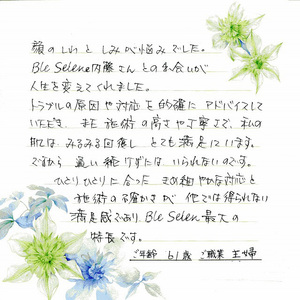 顔のしわとしみが悩みでした。
Ble Selene内藤さんとの出会いが
人生を変えてくれました。
トラブルの原因や対応を的確にアドバイスして
いただき、また施術の高さや丁寧さで、私の
肌は、みるみる回復しとても満足しています。
ですから通い続けずにはいられないのです。
ひとりひとりに合ったきめ細やかな対応と
施術の確かさが他では得られない
満足感であり Ble Selen 最大の
特長です。
ご年齢 61歳 ご職業 主婦